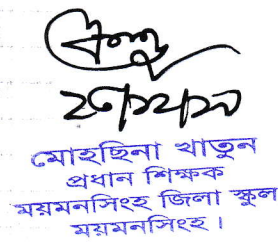 মোহছিনা খাতুন
প্রধান শিক্ষক
ময়মনসিংহ জিলা স্কুল
ময়মনসিংহ।